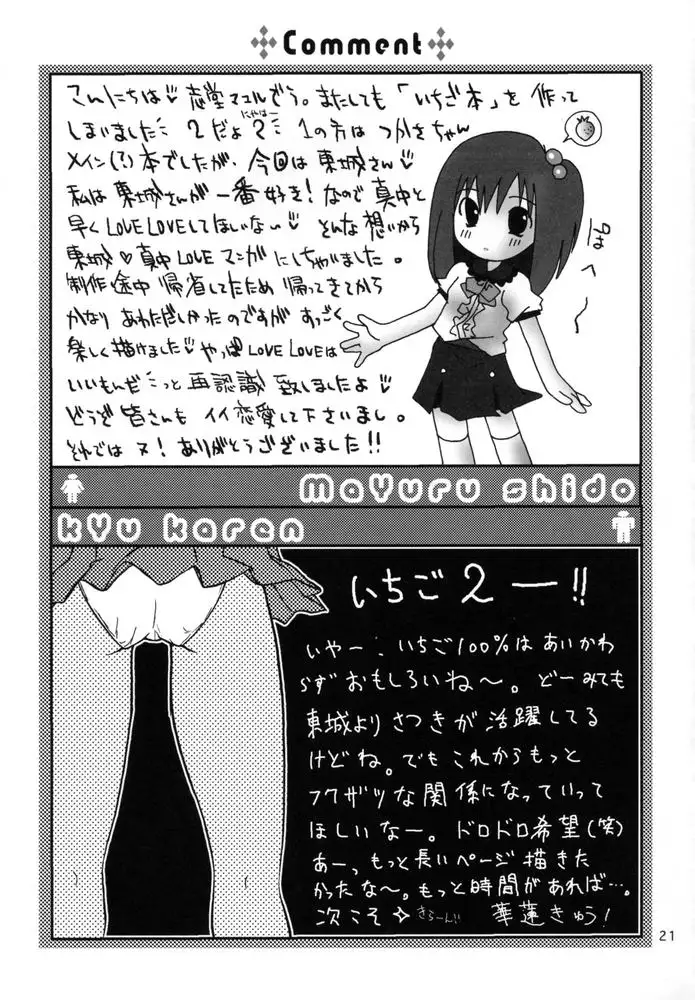 Comment
こんにちは♡ 志堂マユルでぅ。またしても「いちご本」を作って
しまいました 2だよ2 1の方は つかさちゃん
にゃはー
メイン(?)本でしたが、今回は東城さん♡
私は東城さんが一番好き！なので真中と
早くLOVE LOVEしてほしいな♡ そんな想いから
東城♡真中LOVEマンガにしちゃいました。
制作途中帰省してたため 帰ってきてから
かなりあわただしかったのですが すっごく
楽しく描けました♡ やっぱLOVE LOVEは
いいもんだ っと再認識致しましたよ♡
どうぞ皆さんも イイ恋愛して下さいまし。
それでは ありがとうございました!!
mayuru shido
kyu karen
いちご2ー!!
いやー、いちご100%はあいかわ
らずおもしろいね〜。どーみても
東城よりさつきが活躍してる
けどね。でもこれからもっと
フクザツな関係になっていって
ほしいなー。ドロドロ希望(笑)
あーっ、もっと長いページ描きた
かったな〜。もっと時間があれば…。
次こそ✧ きらーん!! 華蓮きゅう!
21